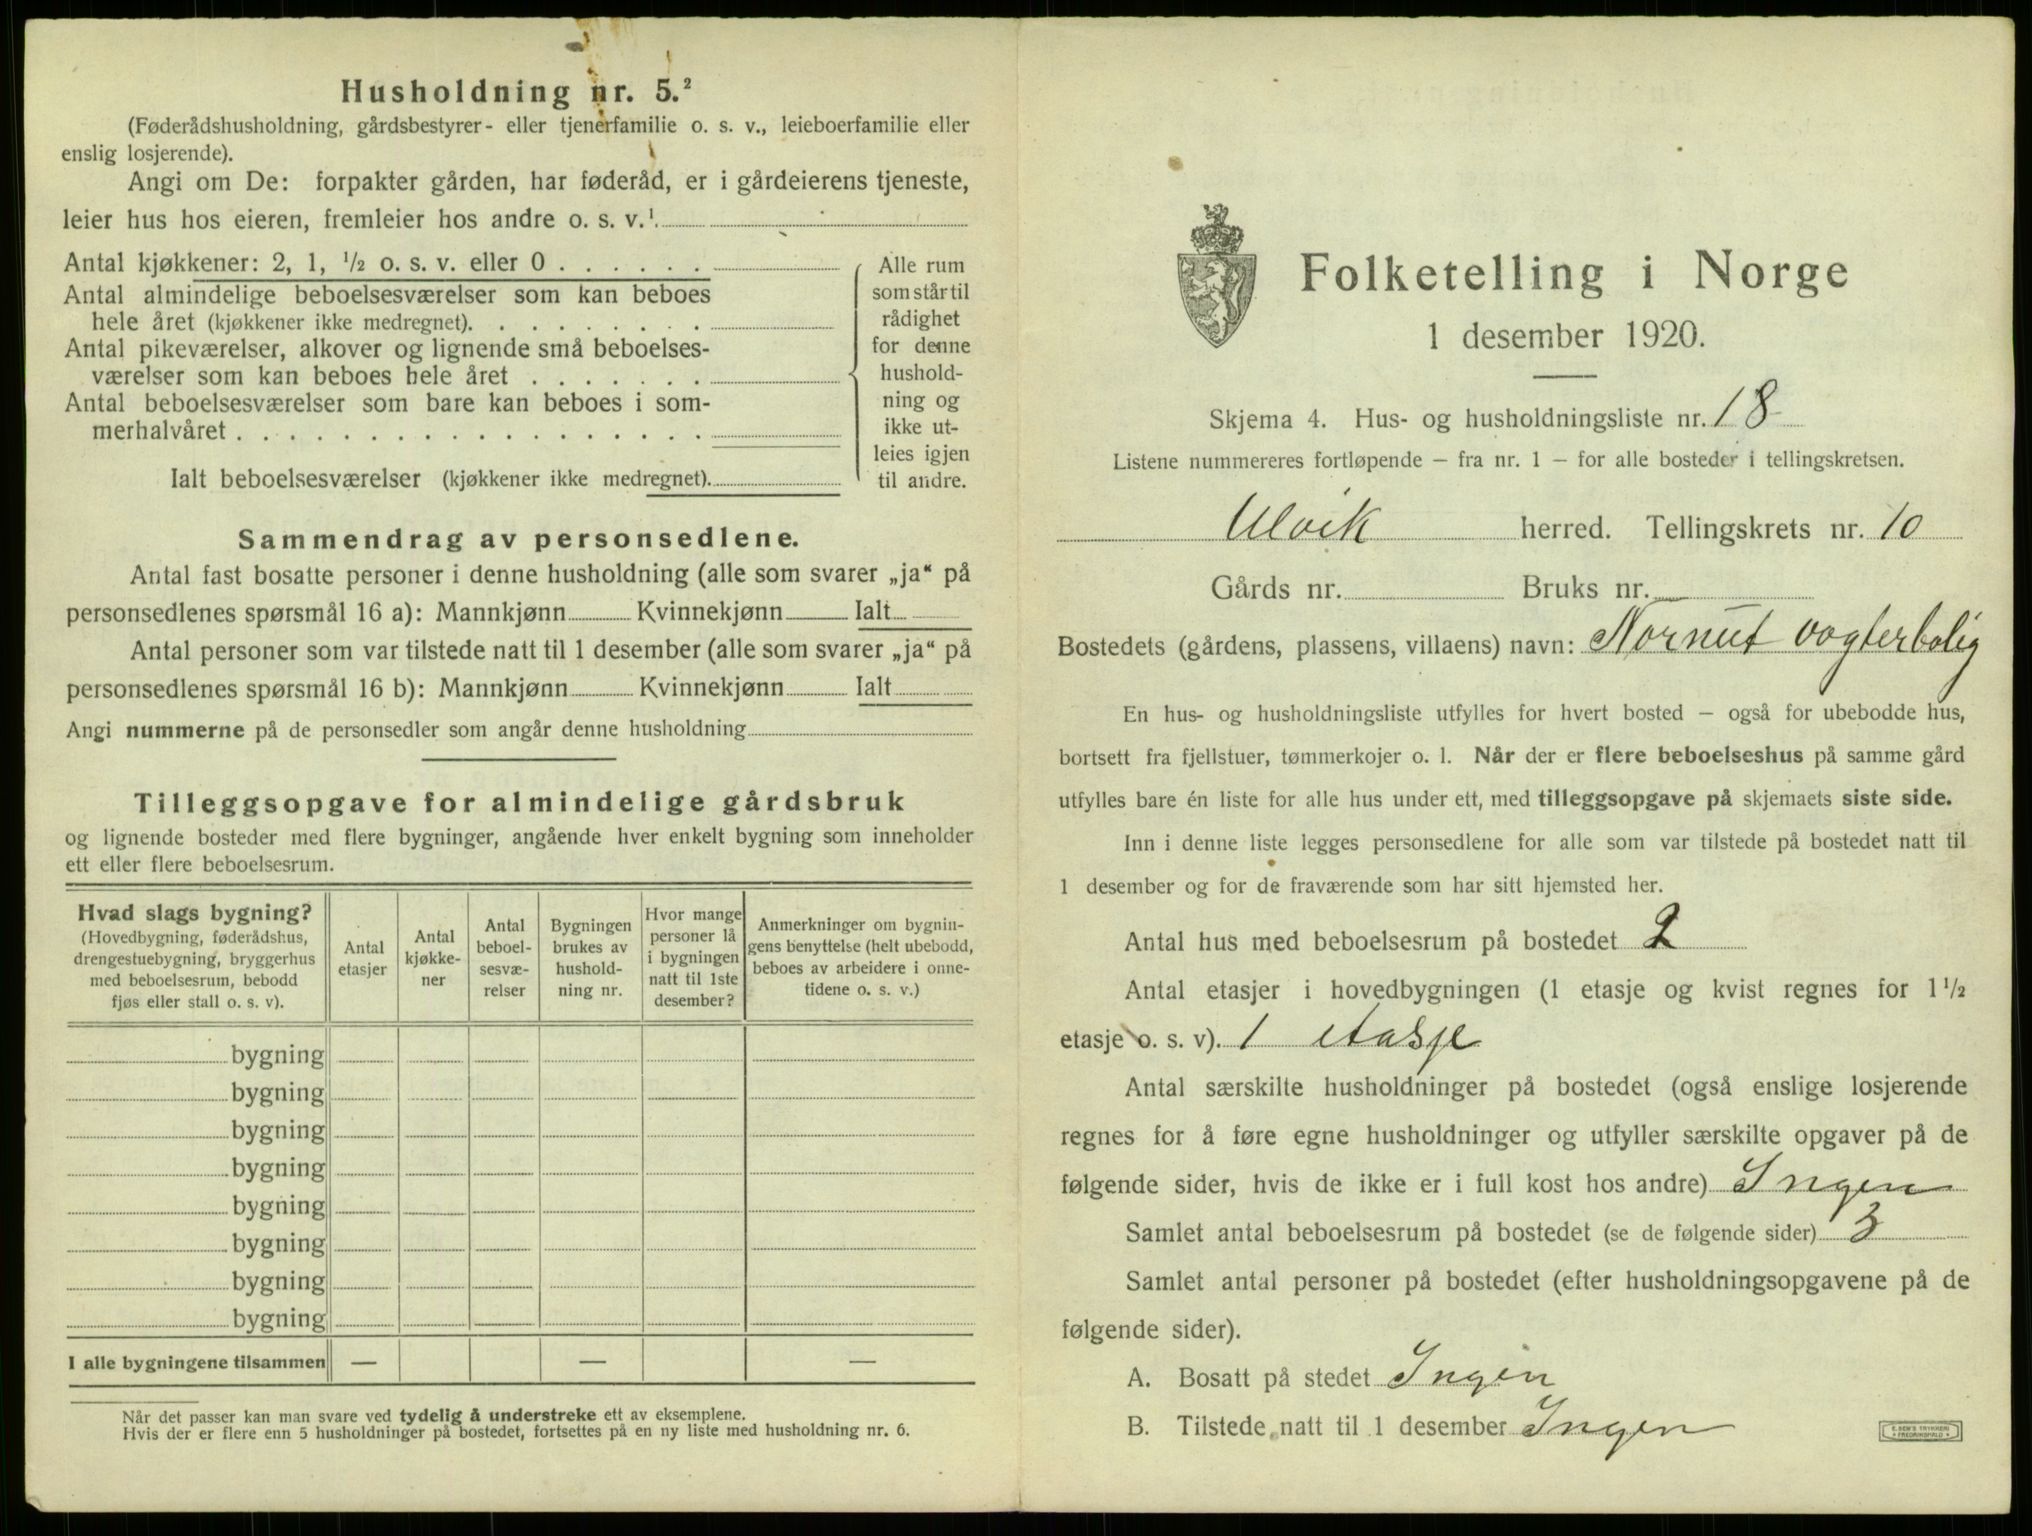 Husholdning nr. 5.²
(Føderådshusholdning, gårdsbestyrer- eller tjenerfamilie o. s. v., leieboerfamilie eller
enslig losjerende).
Angi om De: forpakter gården, har føderåd, er i gårdeierens tjeneste,
leier hus hos eieren, fremleier hos andre o. s. v.¹
Antal kjøkkener: 2, 1, ½ o. s. v. eller 0 . . . . . .
Antal almindelige beboelsesværelser som kan beboes
hele året (kjøkkener ikke medregnet). . . . . . . . .
Antal pikeværelser, alkover og lignende små beboelses-
værelser som kan beboes hele året . . . . . . .
Antal beboelsesværelser som bare kan beboes i som-
merhalvåret . . . . . . . . . . . . . . . . . .
Ialt beboelsesværelser (kjøkkener ikke medregnet).
Alle rum
som står til
rådighet
for denne
hushold-
ning og
ikke ut-
leies igjen
til andre.
Sammendrag av personsedlene.
Antal fast bosatte personer i denne husholdning (alle som svarer „ja“ på
personsedlenes spørsmål 16 a): Mannkjønn Kvinnekjønn Ialt
Antal personer som var tilstede natt til 1 desember (alle som svarer „ja“ på
personsedlenes spørsmål 16 b): Mannkjønn Kvinnekjønn Ialt
Angi nummerne på de personsedler som angår denne husholdning
Tilleggsopgave for almindelige gårdsbruk
og lignende bosteder med flere bygninger, angående hver enkelt bygning som inneholder
ett eller flere beboelsesrum.
Hvad slags bygning?
(Hovedbygning, føderådshus,
drengestuebygning, bryggerhus
med beboelsesrum, bebodd
fjøs eller stall o. s. v).
Antal
etasjer
Antal
kjøkke-
ner
Antal
beboel-
sesvæ-
relser
Bygningen
brukes av
hushold-
ning nr.
Hvor mange
personer lå
i bygningen
natt til 1ste
desember?
Anmerkninger om bygnin-
gens benyttelse (helt ubebodd,
beboes av arbeidere i onne-
tidene o. s. v.)
bygning
bygning
bygning
bygning
bygning
bygning
bygning
bygning
I alle bygningene tilsammen — — —
Når det passer kan man svare ved tydelig å understreke ett av eksemplene.
Hvis der er flere enn 5 husholdninger på bostedet, fortsettes på en ny liste med husholdning nr. 6.
Folketelling i Norge
1 desember 1920.
Skjema 4. Hus- og husholdningsliste nr. 18
Listene nummereres fortløpende – fra nr. 1 – for alle bosteder i tellingskretsen.
Ulvik herred. Tellingskrets nr. 10
Gårds nr. Bruks nr.
Bostedets (gårdens, plassens, villaens) navn: Nornut vogterbolig
En hus- og husholdningsliste utfylles for hvert bosted – også for ubebodde hus,
bortsett fra fjellstuer, tømmerkojer o. l. Når der er flere beboelseshus på samme gård
utfylles bare én liste for alle hus under ett, med tilleggsopgave på skjemaets siste side.
Inn i denne liste legges personsedlene for alle som var tilstede på bostedet natt til
1 desember og for de fraværende som har sitt hjemsted her.
Antal hus med beboelsesrum på bostedet 2
Antal etasjer i hovedbygningen (1 etasje og kvist regnes for 1½
etasje o. s. v). 1 etasje
Antal særskilte husholdninger på bostedet (også enslige losjerende
regnes for å føre egne husholdninger og utfyller særskilte opgaver på de
følgende sider, hvis de ikke er i full kost hos andre) Ingen
Samlet antal beboelsesrum på bostedet (se de følgende sider) 3
Samlet antal personer på bostedet (efter husholdningsopgavene på de
følgende sider).
A. Bosatt på stedet Ingen
B. Tilstede natt til 1 desember Ingen